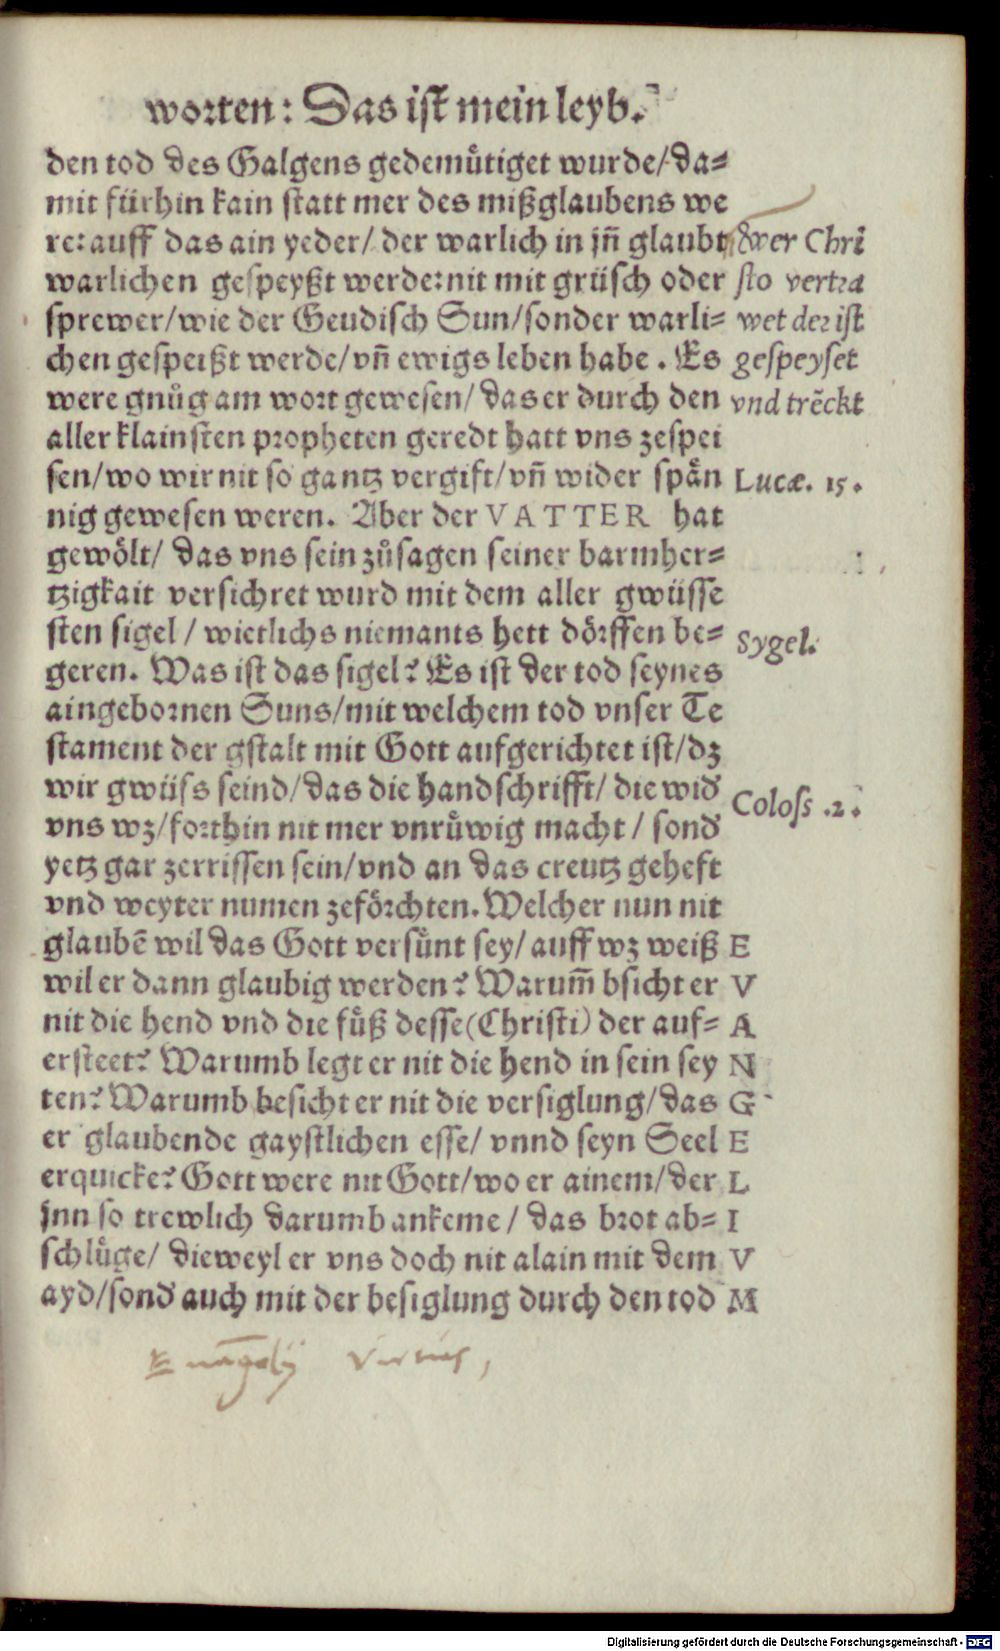 worten: Das ist mein leyb.
den tod des Galgens gedemuͤtiget wurde/ da=
mit fürhin kain statt mer des mißglaubens we
re: auff das ain yeder/ der warlich in jn̄ glaubt
warlichen gespeyßt werde: nit mit grüsch oder
sprewer/ wie der Geudisch Sun/ sonder warli=
chen gespeißt werde/ vn̄ ewigs leben habe. Es
were gnuͦg am wort gewesen/ das er durch den
aller klainsten propheten geredt hatt vns zespei
sen/ wo wir nit so gantz vergift/ vn̄ wider spaͤn
nig gewesen weren. Aber der VATTER hat
gewoͤlt/ das vns sein zuͦsagen seiner barmher=
tzigkait versichret wurd mit dem aller gwüsse
sten sigel/ wietlichs niemants hett doͤrffen be=
geren. Was ist das sigel? Es ist der tod seynes
aingebornen Suns/ mit welchem tod vnser Te
stament der gstalt mit Gott aufgerichtet ist/ dz
wir gwüss seind/ das die handschrifft/ die wid̕
vns wz/ forthin nit mer vnruͤwig macht/ sond̕
yetz gar zerrissen sein/ vnd an das creutz geheft
vnd weyter numen zefoͤrchten. Welcher nun nit
glaubē wil das Gott versuͤnt sey/ auff wz weiß
wil er dann glaubig werden? Warum̄ bsicht er
nit die hend vnd die fuͤß desse (Christi) der auf=
ersteet? Warumb legt er nit die hend in sein sey
ten? Warumb besicht er nit die versiglung/ das
er glaubende gaystlichen esse/ vnnd seyn Seel
erquicke? Gott were nit Gott/ wo er ainem/ der
jnn so trewlich darumb ankeme/ das brot ab=
schluͤge/ dieweyl er vns doch nit alain mit dem
ayd/ sond̕ auch mit der besiglung durch den tod
wer Chri
sto vertra
wet der ist
gespeyset
vnd trēckt
Lucæ. 15.
Sygel.
Coloss .2.
E
V
A
N
G
E
L
I
V
M
Euāgelij virtus,
Digitalisierung gefördert durch die Deutsche Forschungsgemeinschaft - DFG